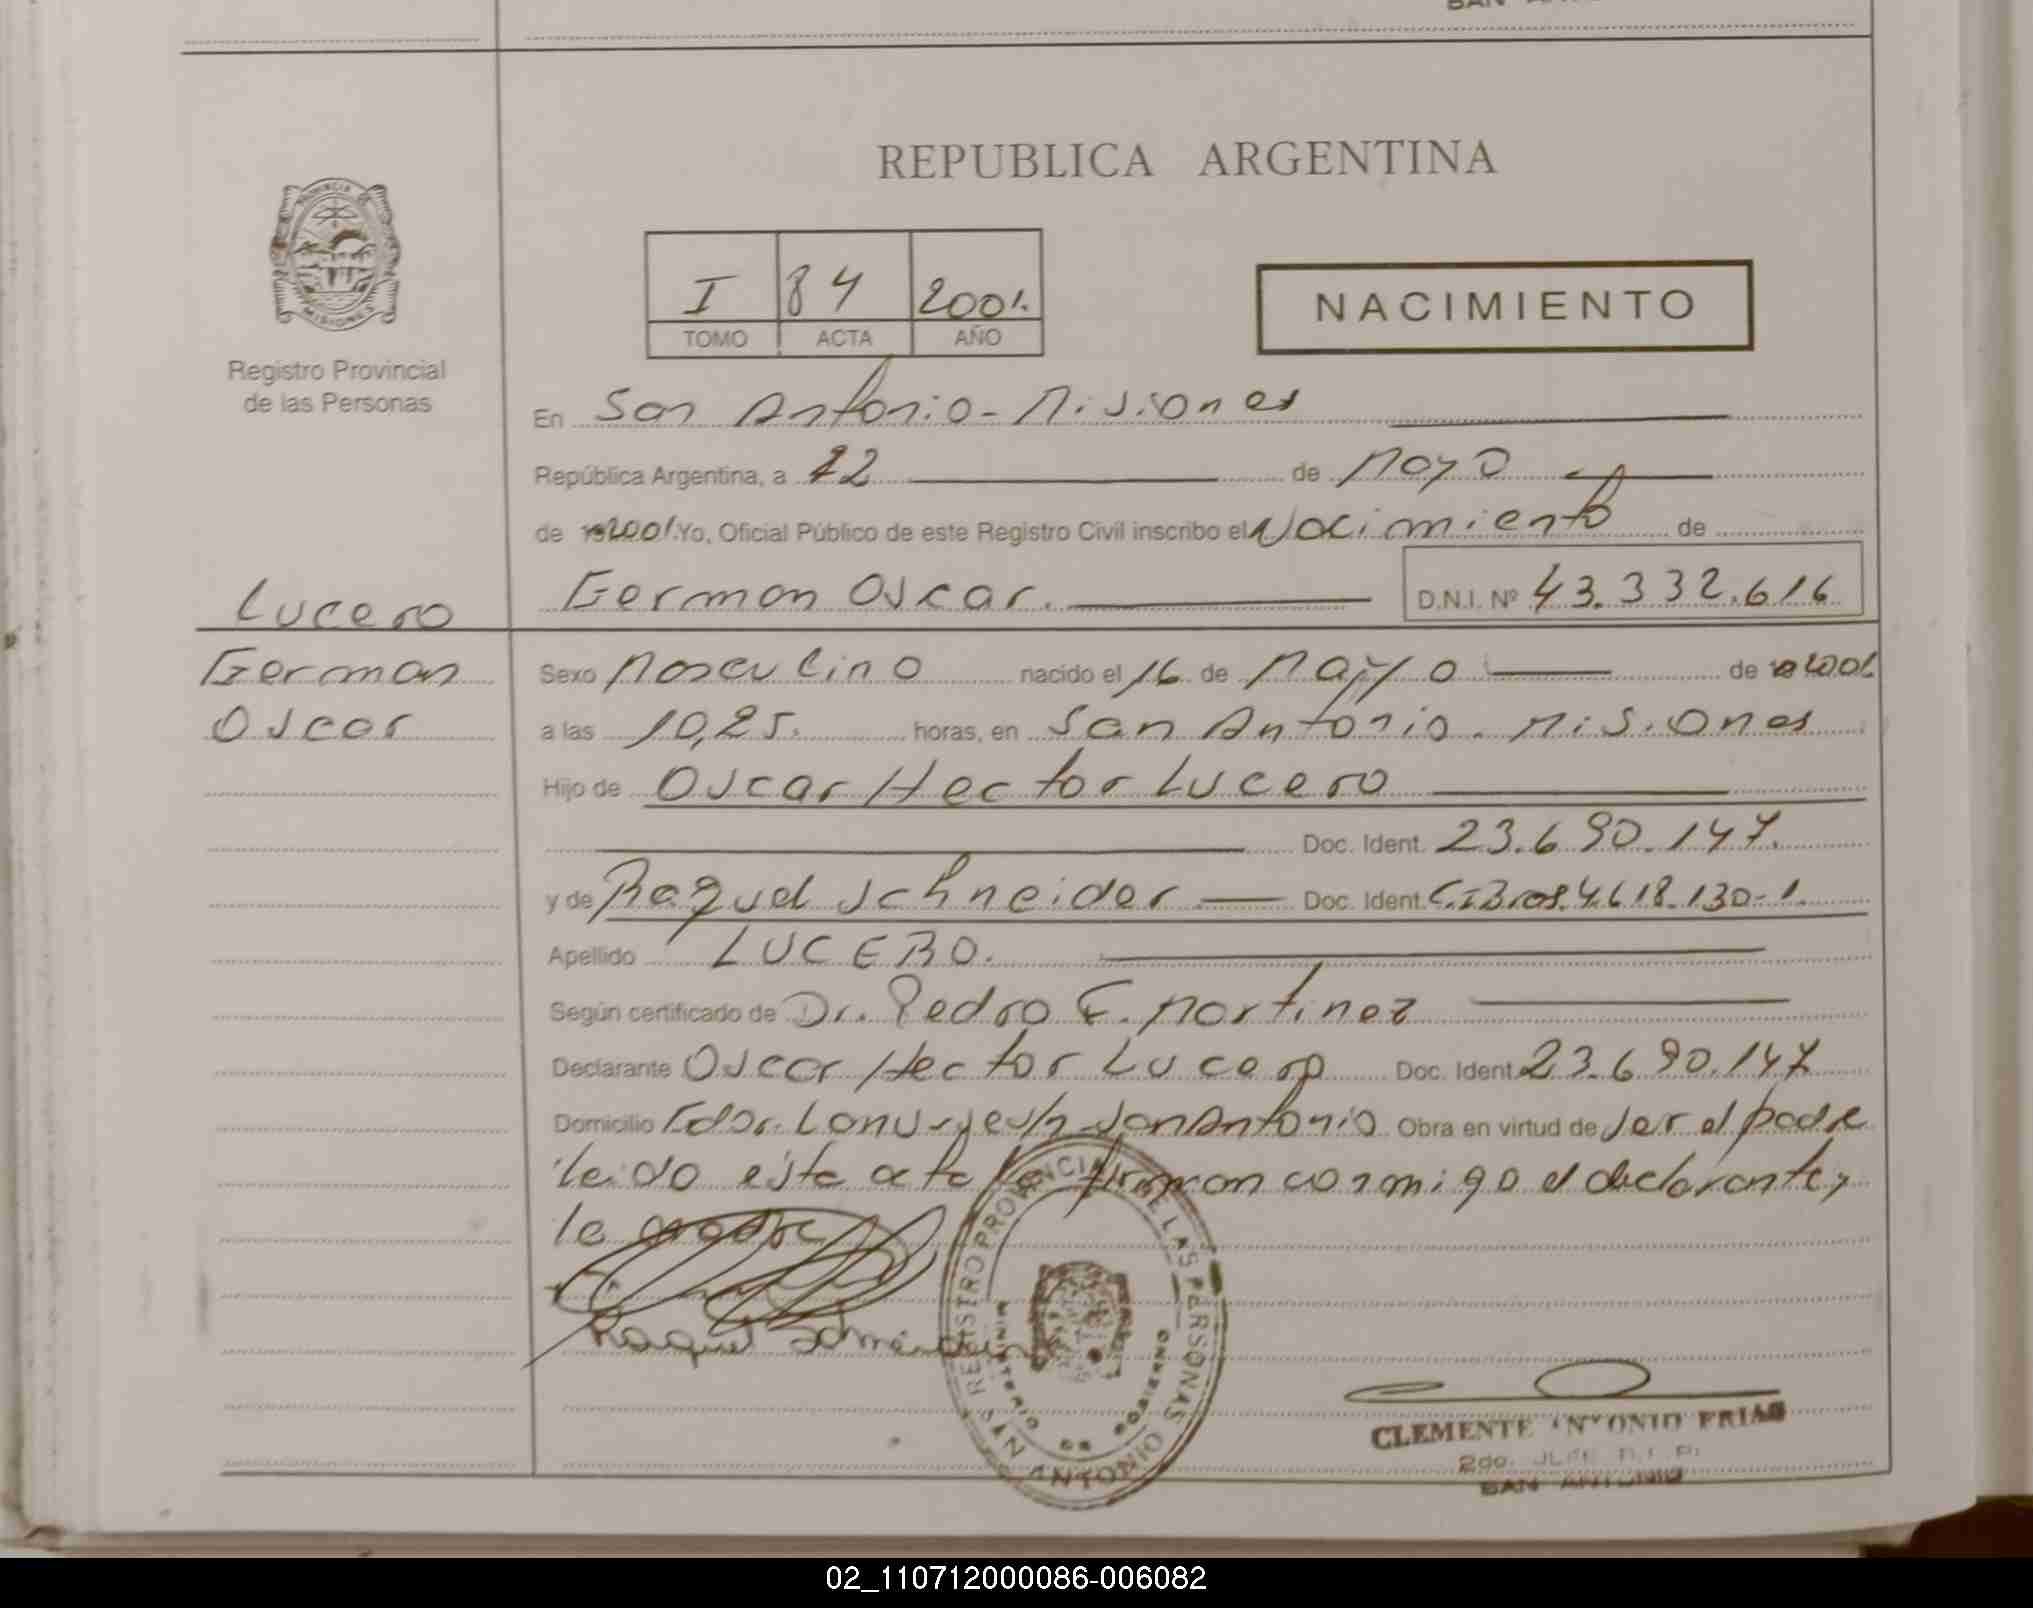 REPUBLICA ARGENTINA
PROVINCIA DE
MISIONES
Registro Provincial
de las Personas
I 84 2001.
TOMO ACTA AÑO
NACIMIENTO
En San Antonio - Misiones
República Argentina, a 22 de Mayo
de 2001. Yo, Oficial Público de este Registro Civil inscribo el Nacimiento de
German Oscar. D.N.I. Nº 43.332.616
Lucero
German
Oscar
Sexo Masculino nacido el 16 de Mayo de 2001
a las 10,25. horas, en San Antonio - Misiones
Hijo de Oscar Hector Lucero
Doc. Ident. 23.690.147.
y de Raquel Schneider Doc. Ident. 4.618.130-1.
Apellido LUCERO.
Según certificado de Dr. Pedro E. Martinez
Declarante Oscar Hector Lucero Doc. Ident. 23.690.147
Domicilio San Antonio Obra en virtud de ser el padre
leido este acta la firman conmigo el declarante y
la madre
Raquel Schneider
REGISTRO PROVINCIAL DE LAS PERSONAS
MINISTERIO DE GOBIERNO
SAN ANTONIO
CLEMENTE ANTONIO FRIAS
2do. JEFE R.P.P.
SAN ANTONIO
02_110712000086-006082